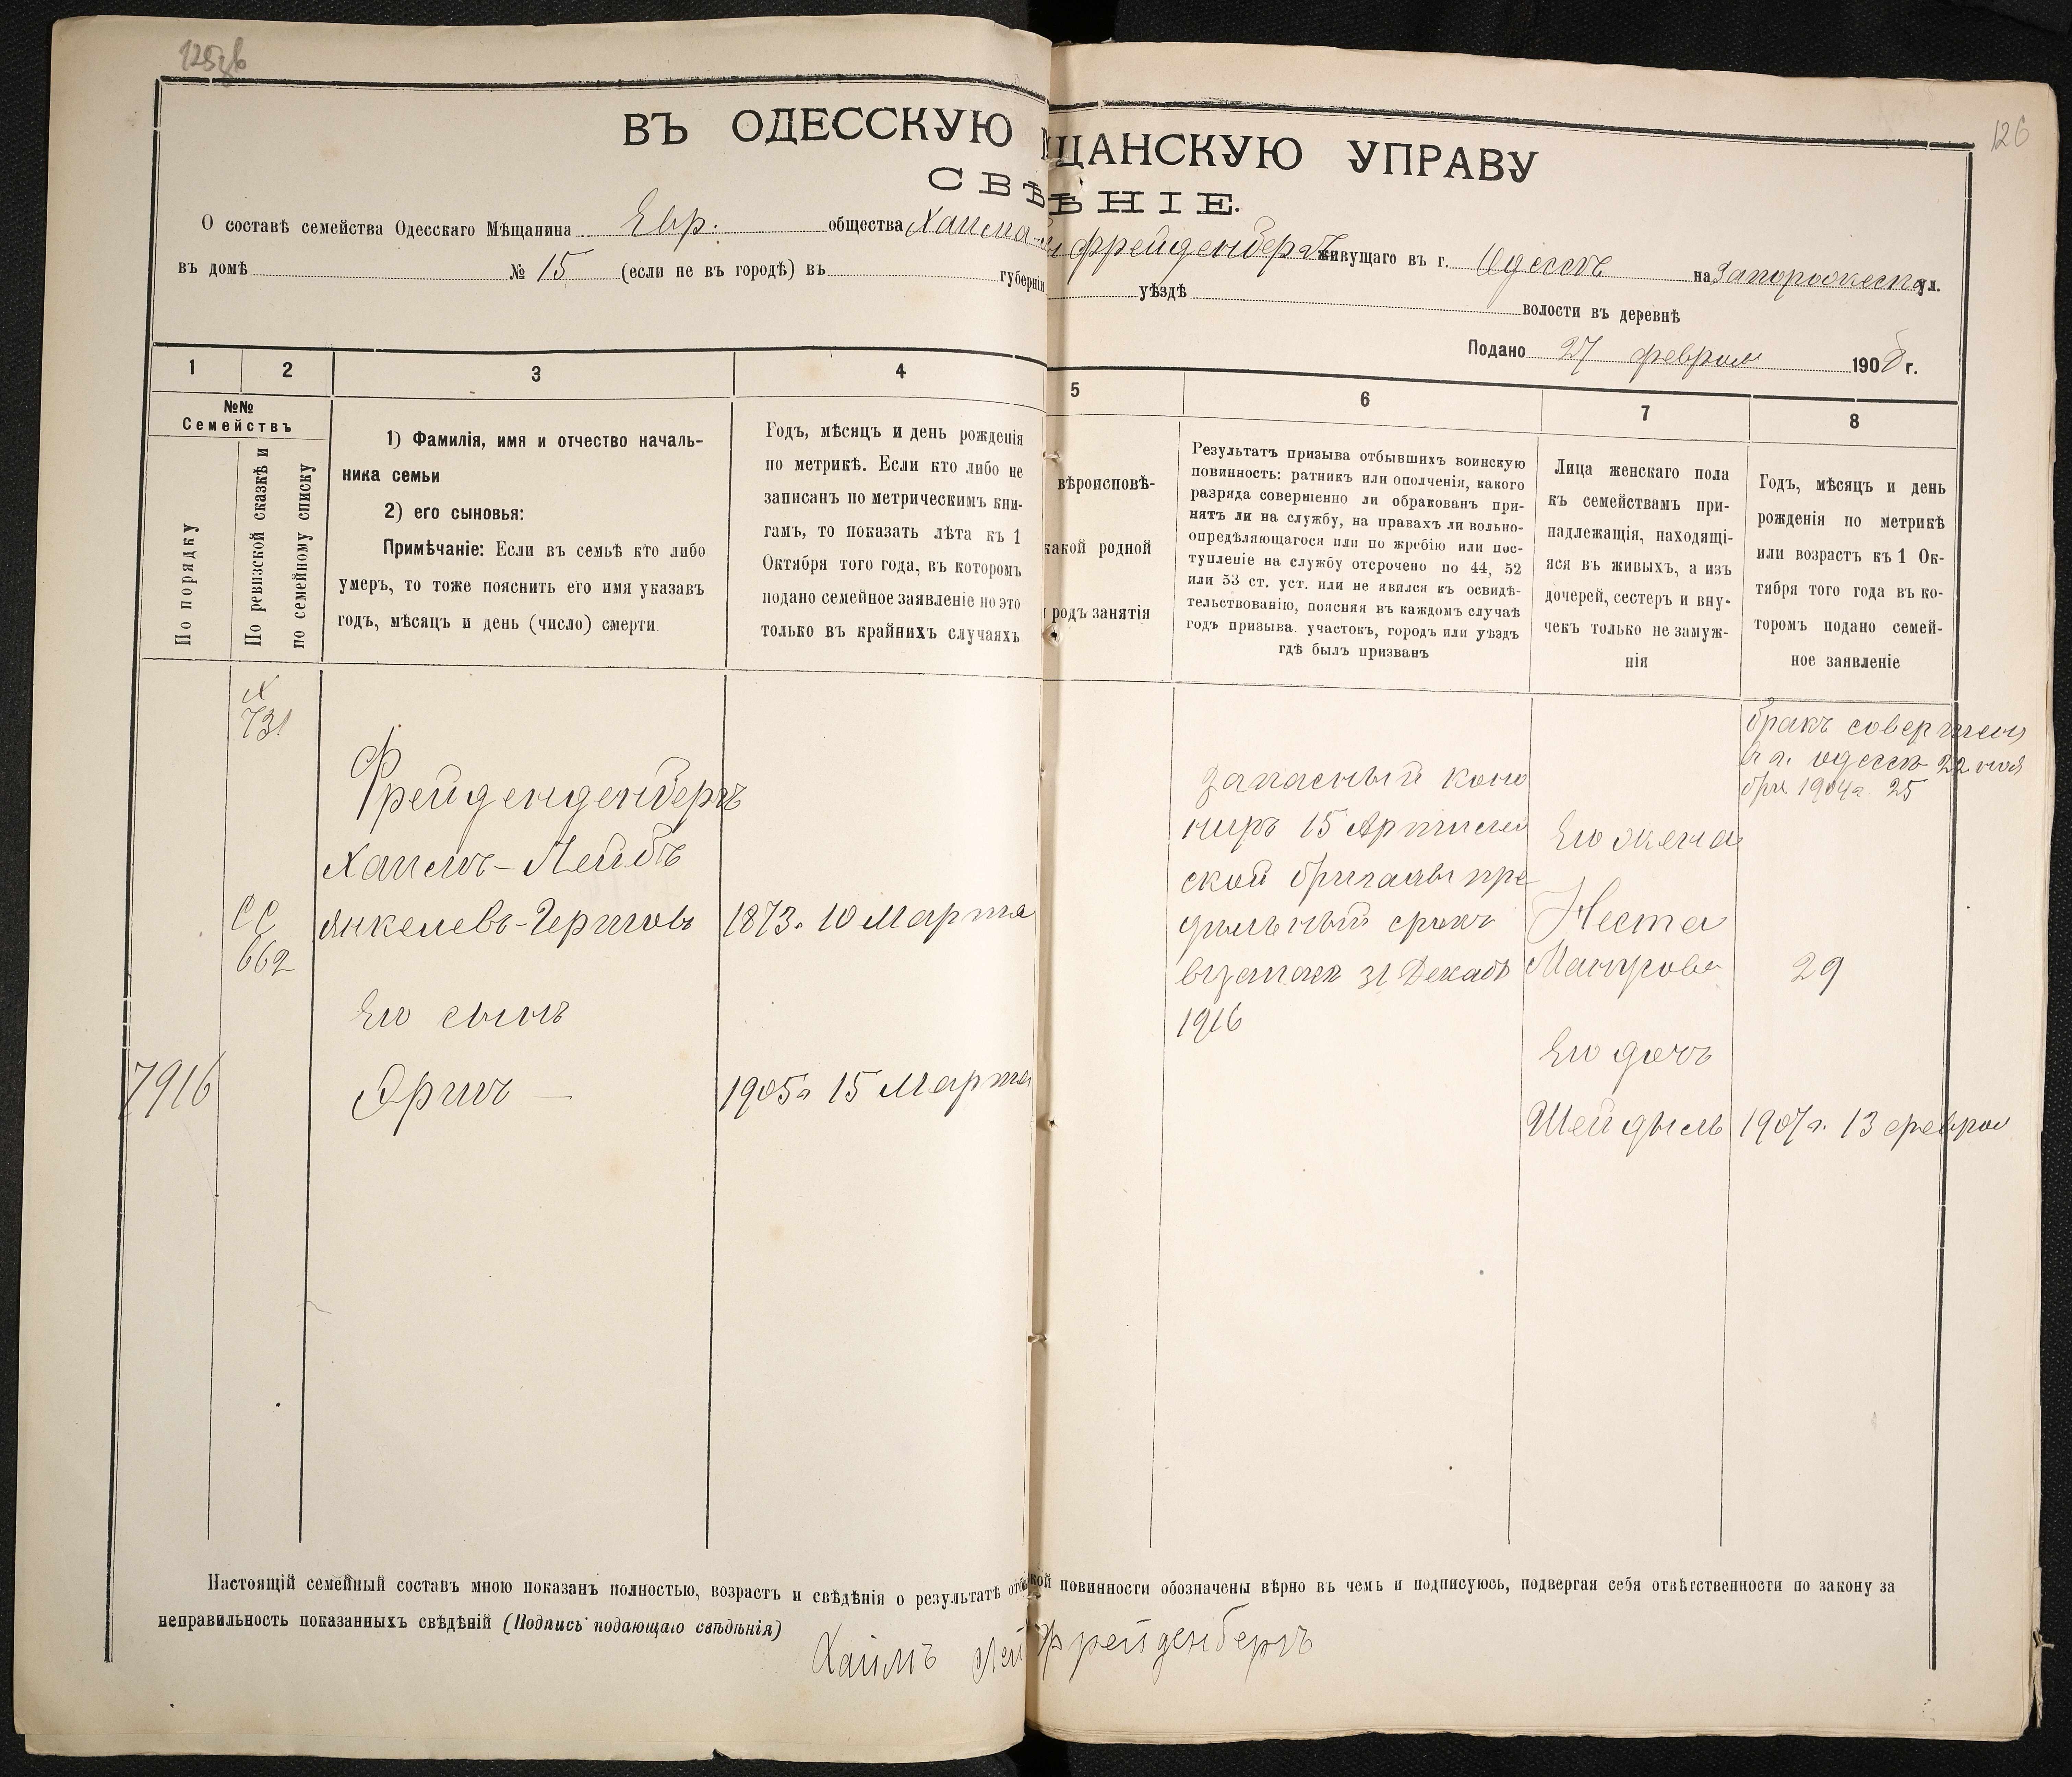 125об
126
ВЪ ОДЕССКУЮ ЩАНСКУЮ УПРАВУ
СВѢ ѢНІЕ.
О составѣ семейства Одесскаго Мѣщанина Евр. общества Хаима- Фрейденбергъ живущаго въ г. Одессѣ на Запорожск ул.
въ домѣ № 15 (если не въ городѣ) въ губерніи уѣздѣ волости въ деревнѣ
Подано 27 февраля 1908 г.
1 2 3 4 5 6 7 8
№№
Семействъ
По порядку
По ревизской сказкѣ и
по семейному списку
1) Фамилія, имя и отчество началь-
ника семьи
2) его сыновья:
Примѣчаніе: Если въ семьѣ кто либо
умеръ, то тоже пояснить его имя указавъ
годъ, мѣсяцъ и день (число) смерти
Годъ, мѣсяцъ и день рожденія
по метрикѣ. Если кто либо не
записанъ по метрическимъ кни-
гамъ, то показать лѣта къ 1
Октября того года, въ которомъ
подано семейное заявленіе но это
только въ крайнихъ случаяхъ
вѣроисповѣ-
какой родной
родъ занятія
Результатъ призыва отбывшихъ воинскую
повинность: ратникъ или ополченія, какого
разряда совершенно ли обракованъ при-
нятъ ли на службу, на правахъ ли вольно-
опредѣляющагося или по жребію или пос-
тупленіе на службу отсрочено по 44, 52
или 53 ст. уст. или не явился къ освидѣ-
тельствованію, поясняя въ каждомъ случаѣ
годъ призыва участокъ, городъ или уѣздъ
гдѣ былъ призванъ
Лица женскаго пола
къ семействамъ при-
надлежащія, находящі-
яся въ живыхъ, а изъ
дочерей, сестеръ и вну-
чекъ только не замуж-
нія
Годъ, мѣсяцъ и день
рожденія по метрикѣ
или возрастъ къ 1 Ок-
тября того года въ ко-
торомъ подано семей-
ное заявленіе
731
Фрейденденбергъ
Хаимъ-Лейбъ
Янкелевъ-Гершовъ 1873г 10 Марта
СС
662
Его сынъ
7916 Эриъ — 1905г 15 Марта
запасный коно
ниръ 15 Артилей
ской бригады пре
дѣльный срокъ
въ запасѣ 31 Декаб
1916
Его жена
Неста
29
Его дочь
Шейдыль 1907г. 13 феврал
бракъ соверш
в г. Одессѣ 22 ноя
бря 1904г 25
Настоящій семейный составъ мною показанъ полностью, возрастъ и свѣдѣнія о результатѣ отбы кой повинности обозначены вѣрно въ чемъ и подписуюсь, подвергая себя отвѣтственности по закону за
неправильность показанныхъ свѣдѣній (Подпись подающаго свѣдѣнія)
Хаимъ Лей Фрейденбергъ